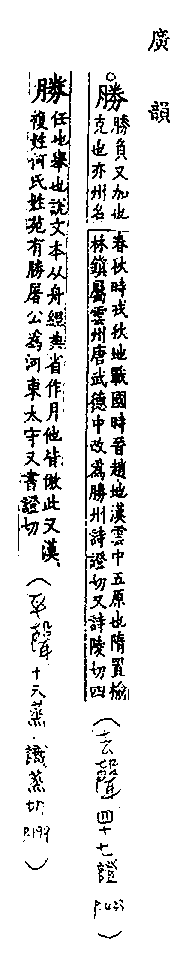 廣韻
○勝 勝負又加也
克也亦州名
春秋時戎狄地戰國時晉趙地漢雲中五原也隋置榆
林鎮屬雲州唐武德中改為勝州詩證切又詩陵切四
(去聲 四十七證 P.433)
勝 任也舉也說文本从舟經典省作月他皆倣此又漢
複姓何氏姓苑有勝屠公為河東太守又書證切
(平聲 十六蒸·識蒸切 P.199)